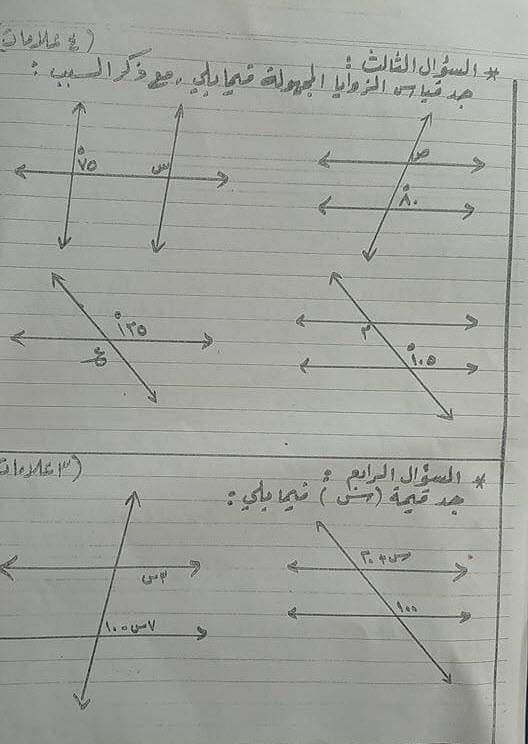 (٤ علامات)
* السؤال الثالث :
جد قياس الزوايا المجهولة فيما يلي ، مع ذكر السبب :
ص
°٨٠
°٧٥
س
م
°١٠٥
°١٣٥
ع
* السؤال الرابع :
(٣ علامات)
جد قيمة (س) فيما يلي :
س+٢٠
١٠٠
٣س